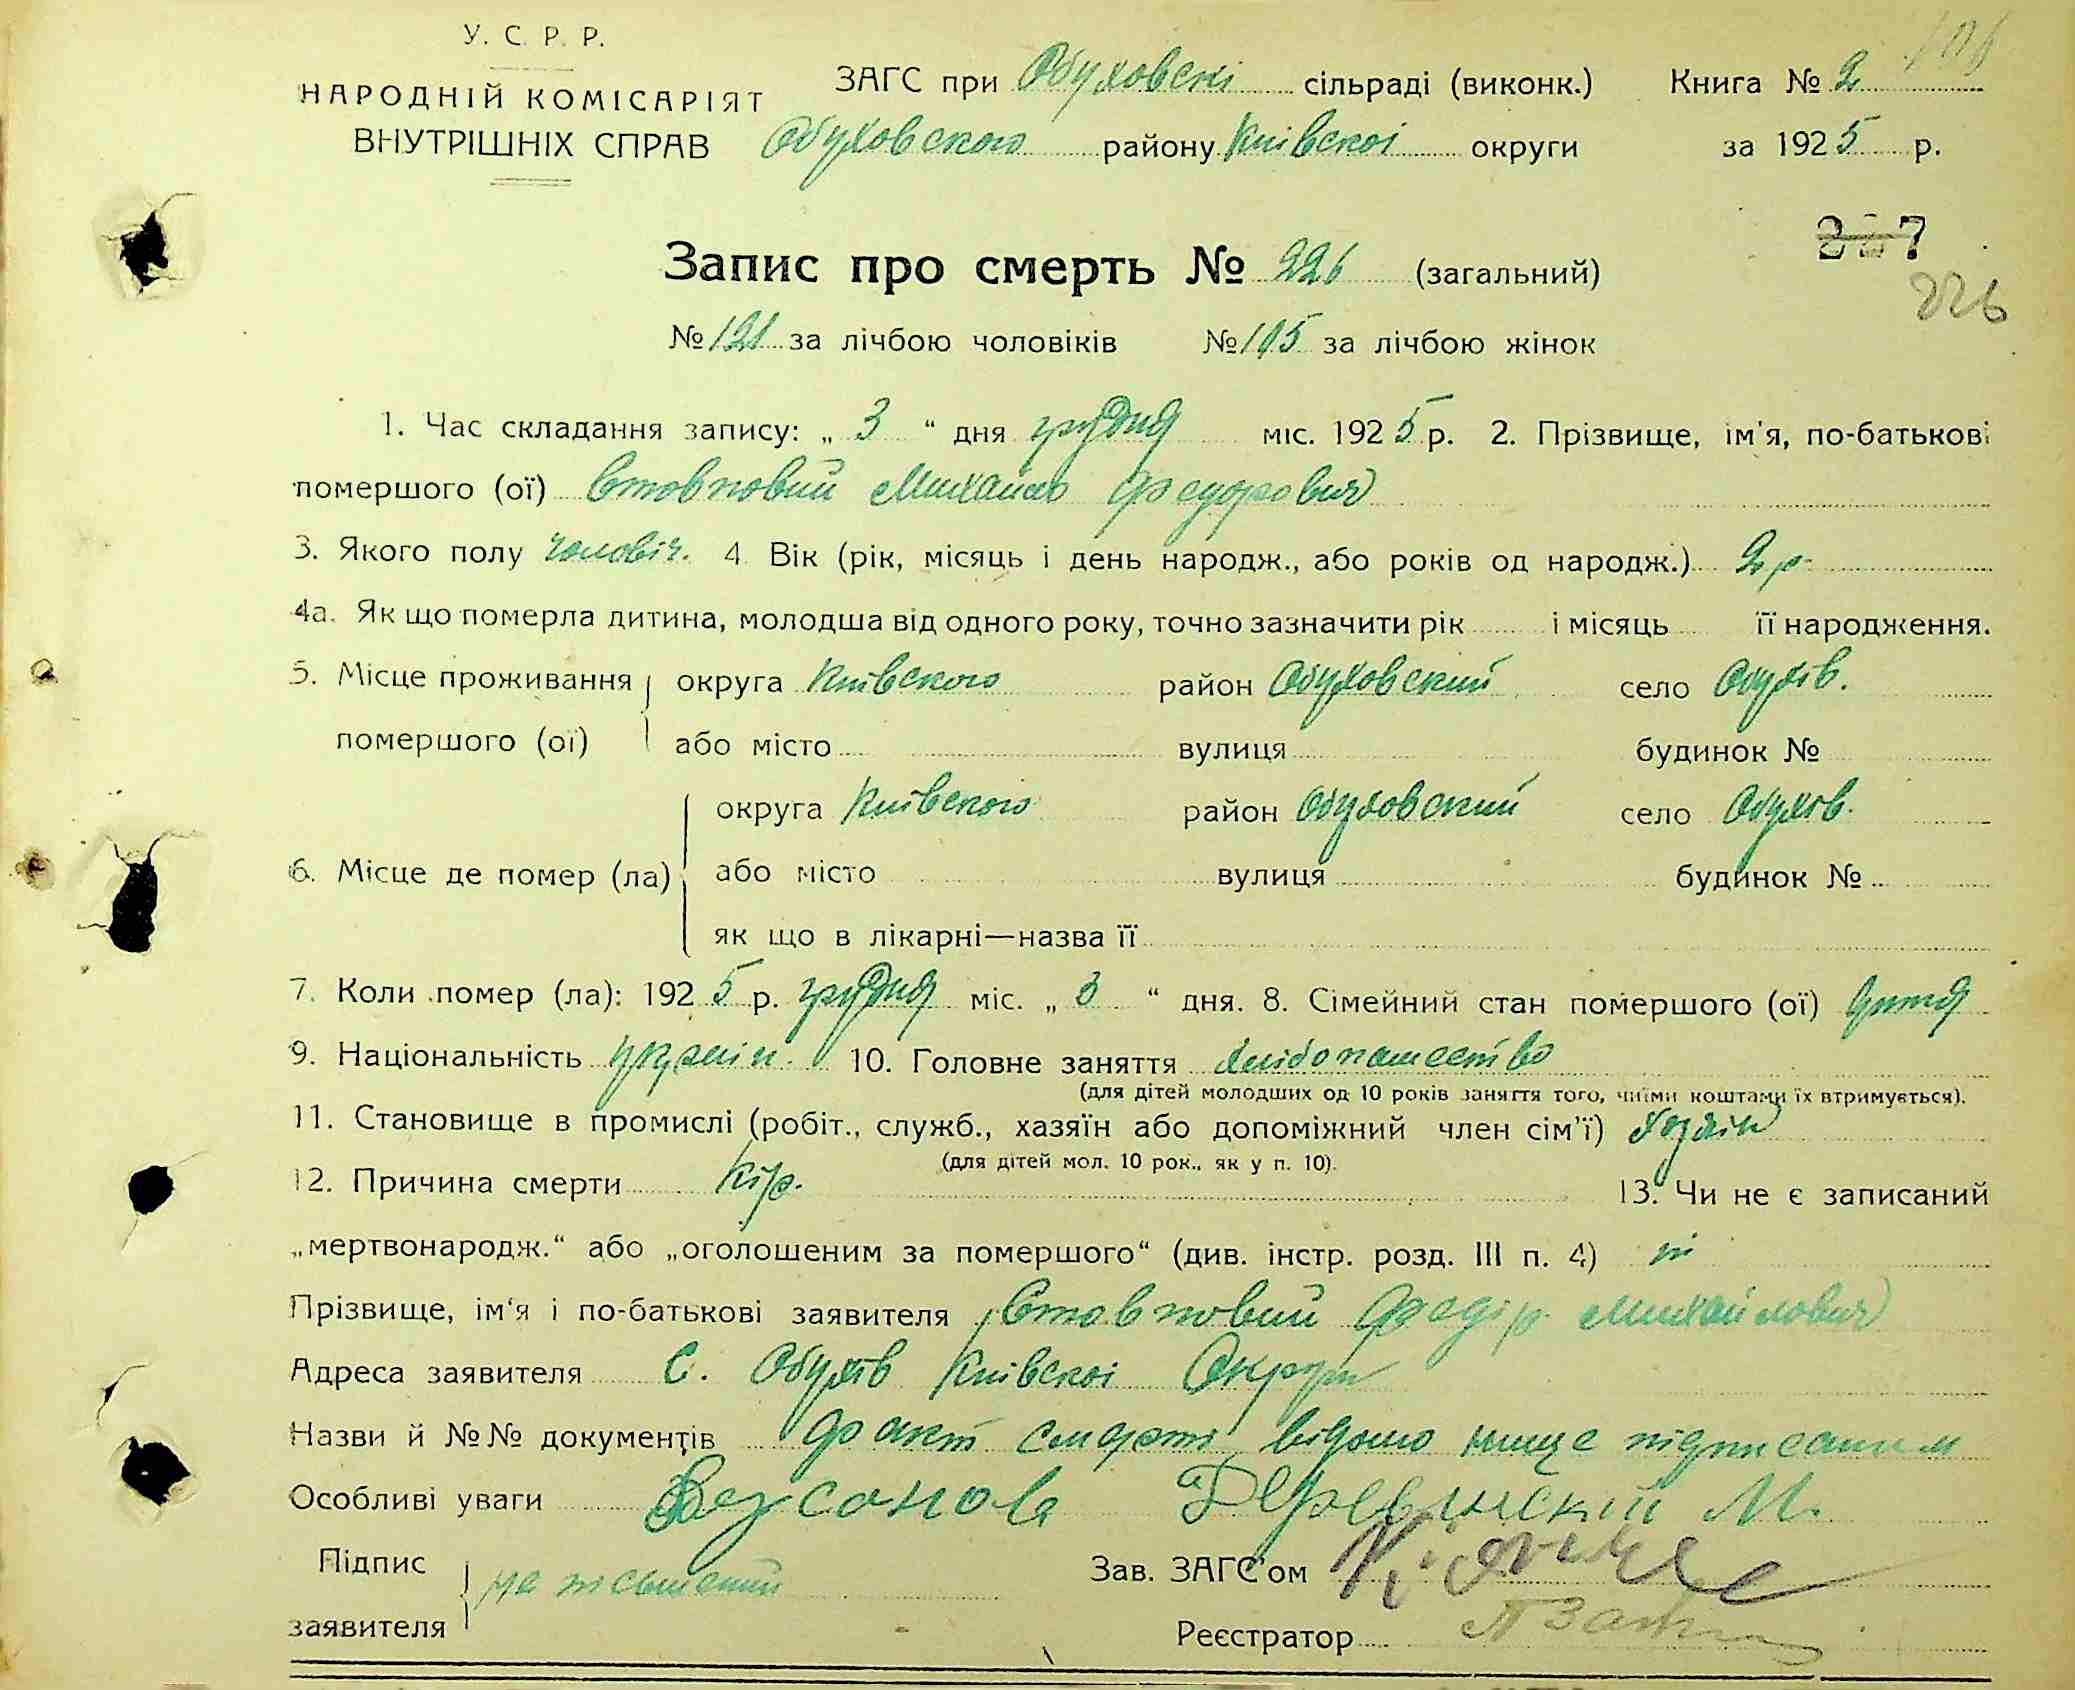 У. С. Р. Р.
НАРОДНІЙ КОМІСАРІЯТ
ВНУТРІШНІХ СПРАВ
ЗАГС при Обуховскі сільраді (виконк.) Книга № 2
Обуховского району Київскоі округи за 1925 р.
Запис про смерть № 226 (загальний)
227
226
№ 121 за лічбою чоловіків № 105 за лічбою жінок
1. Час складання запису: „ 3 “ дня грудня міс. 1925 р. 2. Прізвище, ім'я, по-батькові
помершого (ої) Стовповий Михайло Федорович
3. Якого полу чоловіч. 4 Вік (рік, місяць і день народж., або років од народж.) 2 р.
4а. Як що померла дитина, молодша від одного року, точно зазначити рік і місяць її народження.
5. Місце проживання округа Київского район Обуховский село Обухів.
помершого (ої) або місто вулиця будинок №
округа Київского район Обуховский село Обухів.
6. Місце де помер (ла) або місто вулиця будинок №
як що в лікарні—назва її
7. Коли помер (ла): 1925 р. грудня міс. „ 3 “ дня. 8. Сімейний стан помершого (ої) дитя
9. Національність україн. 10. Головне заняття хлібопашество
(для дітей молодших од 10 років заняття того, чиїми коштами їх втримується).
11. Становище в промислі (робіт., служб., хазяїн або допоміжний член сім'ї) хозяін
(для дітей мол. 10 рок., як у п. 10).
12. Причина смерти кір. 13. Чи не є записаний
„мертвонародж.“ або „оголошеним за помершого“ (див. інстр. розд. III п. 4) ні
Прізвище, ім'я і по-батькові заявителя Стовповий Федір Михайлович
Адреса заявителя С. Обухів Київскоі Округи
Назви й №№ документів факт смерті відомо нище підписаним
Особливі уваги М.
Підпис не письмений Зав. ЗАГС'ом
заявителя Реєстратор